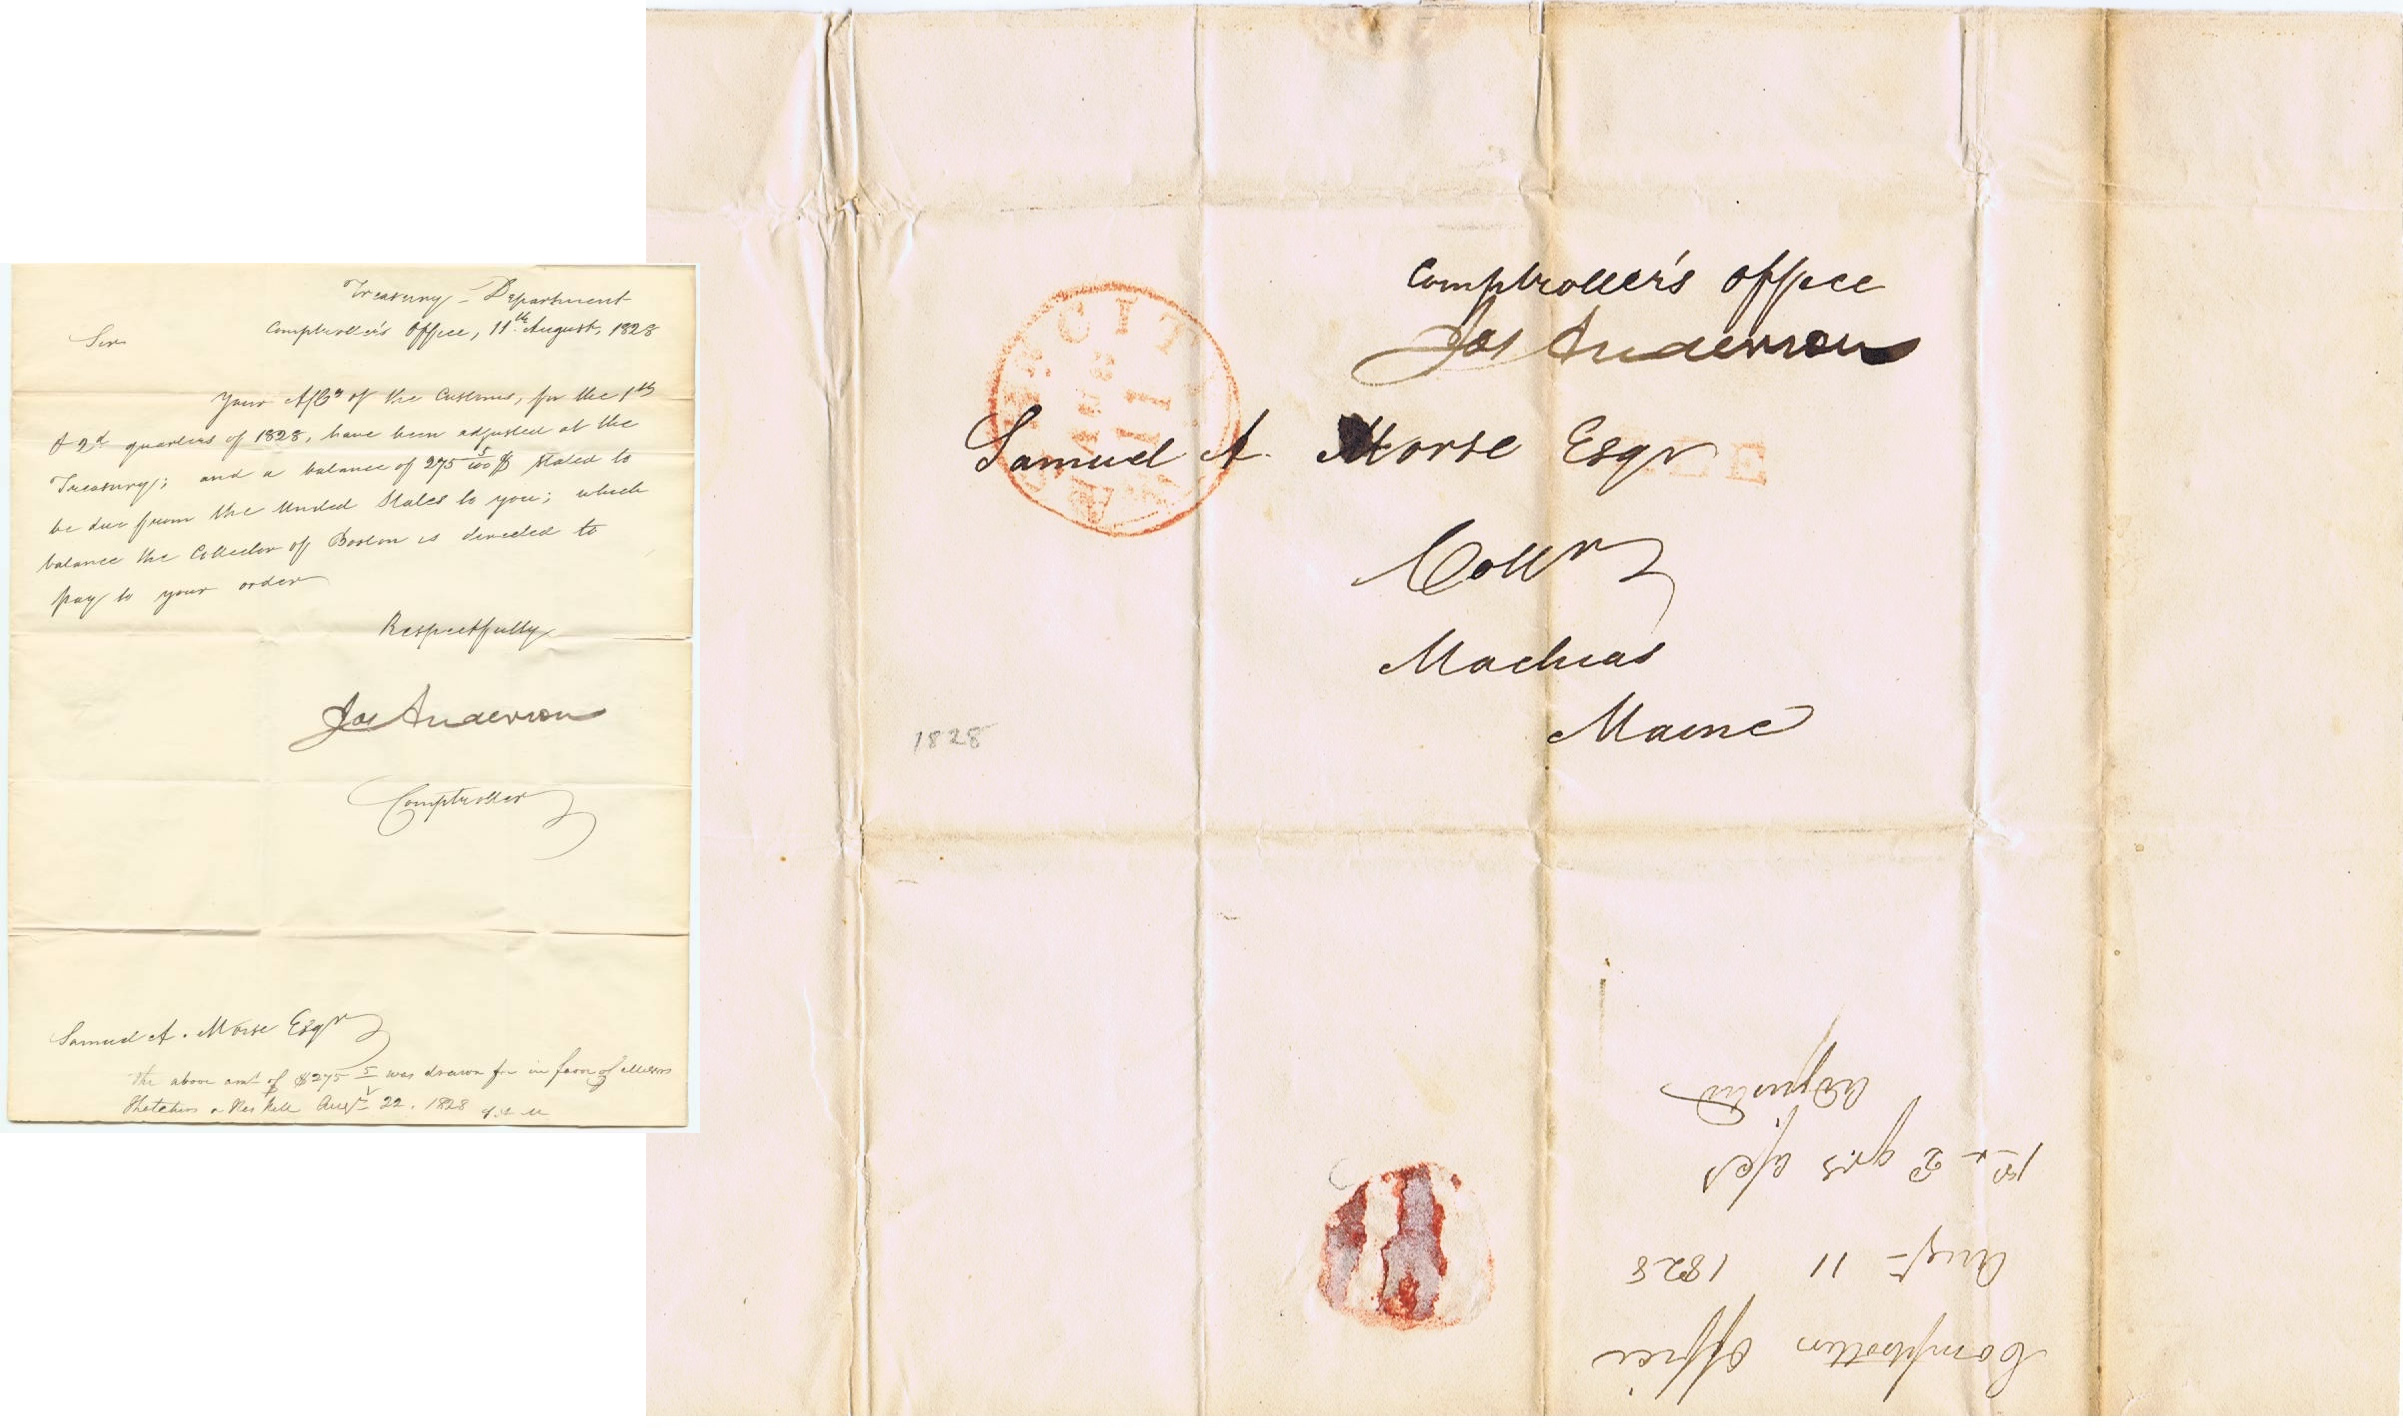 Treasury - Department
Comptroller's Office, 11th August, 1828
Sir
Your A/Cs of the Customs, for the 1st
& 2d quarters of 1828, have been adjusted at the
Treasury; and a balance of 275 5/100 $ stated to
be due from the United States to you; which
balance the Collector of Boston is directed to
pay to your order
Respectfully
Jos Anderson
Comptroller
Samuel A. Morse Esqr
The above amt of $275 5/ was drawn for in favor of Messrs
Augt 22. 1828
Comptroller's Office
Jos Anderson
CITY
AUG
11
Samuel A. Morse Esqr
FREE
Collr
Machias
Maine
1828
Comptrollers Office
Augt 11 1828
1st & 2 qrs a/cs
adjusted